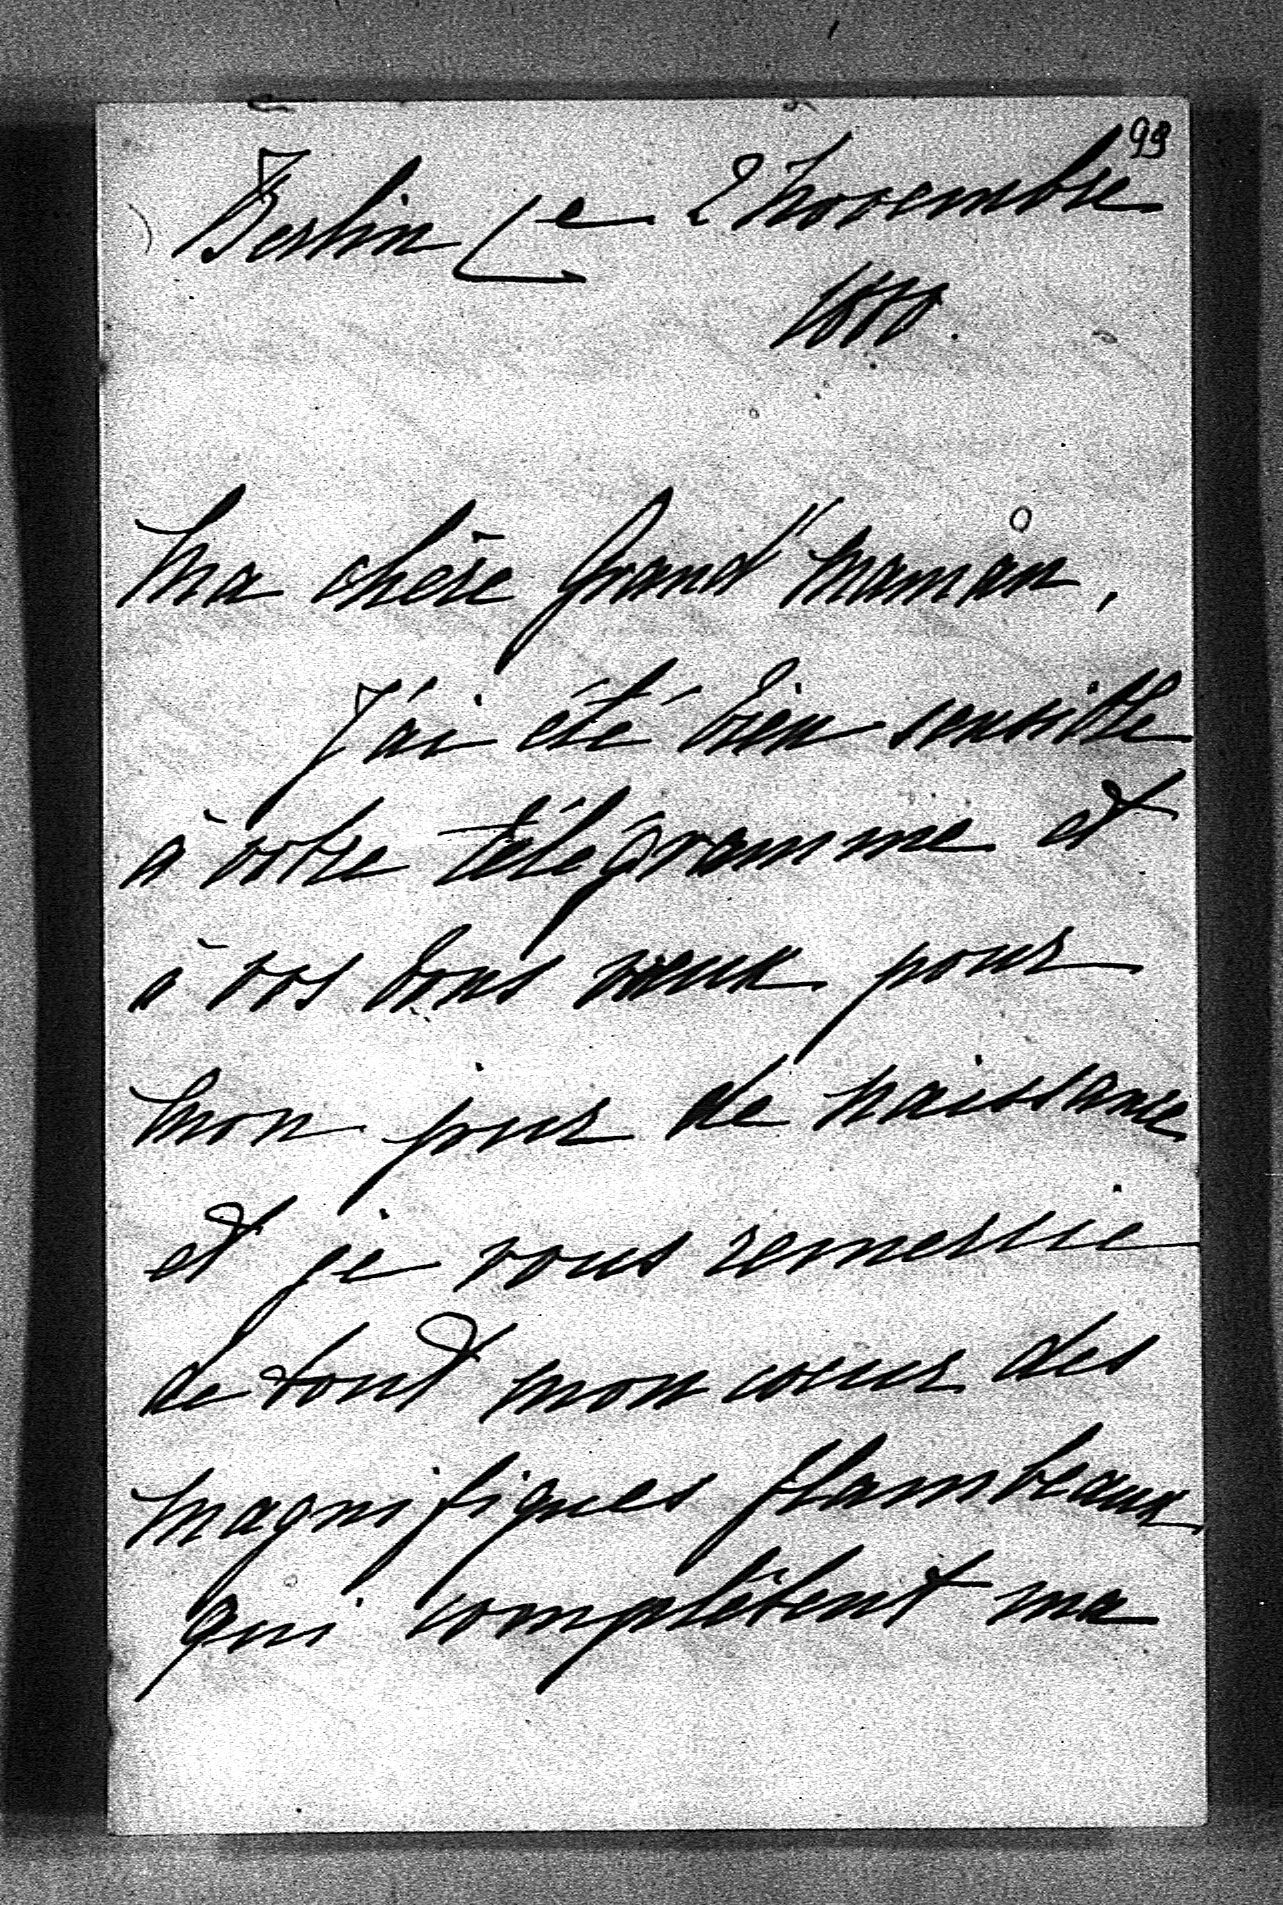 93
Berlin le 2 Novembre
1880.
Ma chère Grand'maman,
J'ai été bien sensible
à votre télégramme et
à vos bons vœux pour
mon jour de naissance
et je vous remercie
de tout mon cœur des
magnifiques flambeaux
qui complètent ma